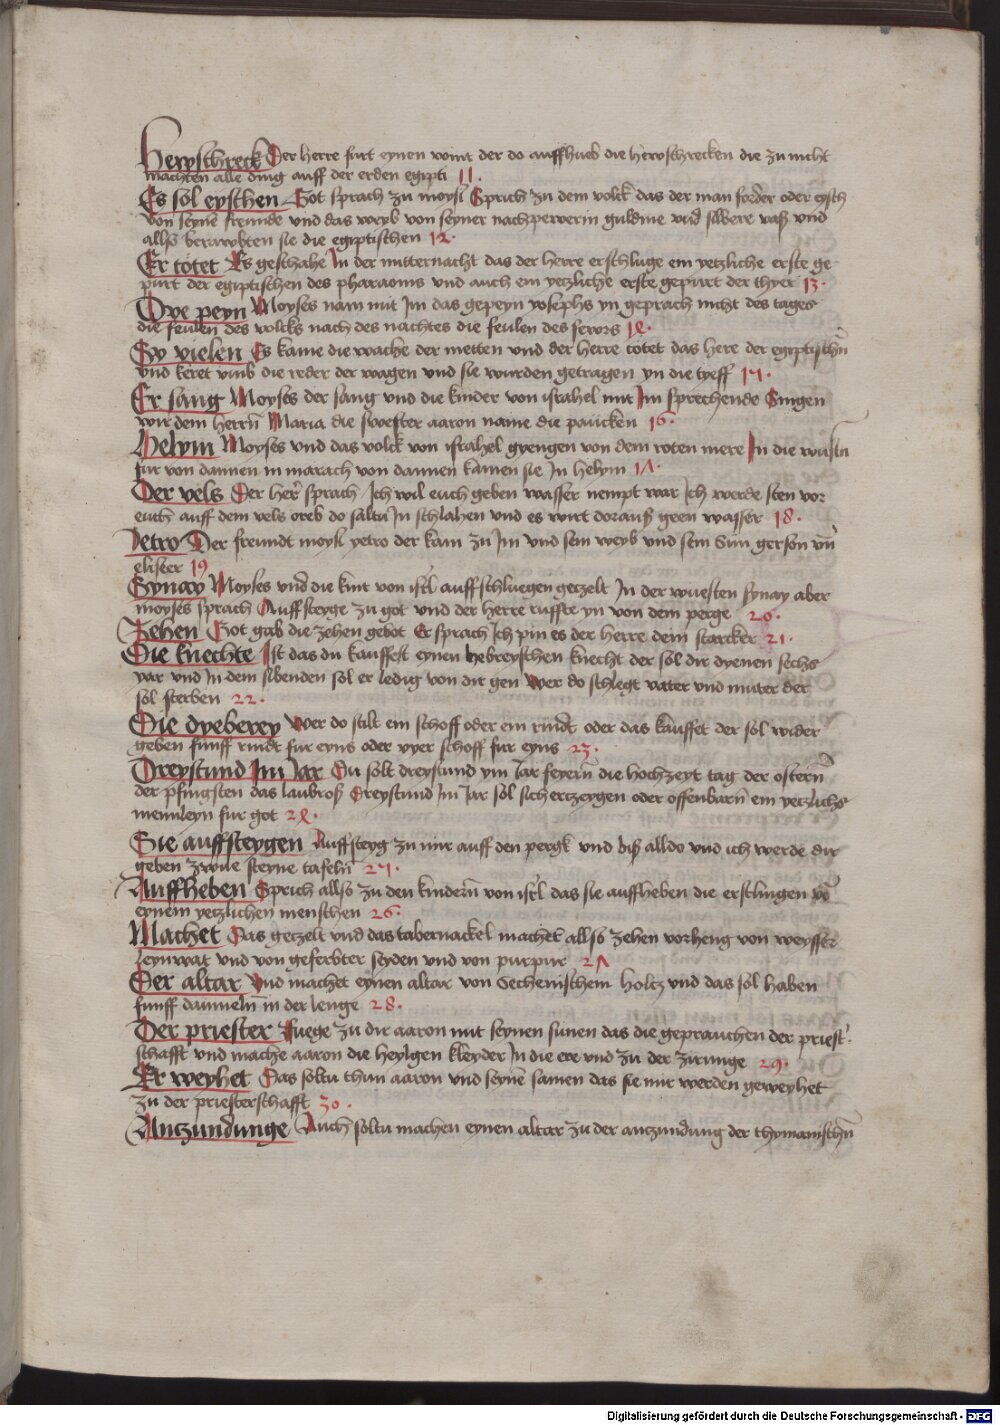 Hewschreck Der herre furt eynen wint der do auffhub die hewschrecken die zu nicht
machten alle ding auff der erden egipti 11.
Es sol eyschen Got sprach zu moysi Sprich zu dem volck das der man forder oder eysch
von seynē freunde und das weyb von seyner nachpewerin guldine und silbere vaß und
allß berawbten sie die egiptischen 12.
Er totet Es geschahe In der mitternacht das der herre erschluge ein yetzliche erste ge
purt der egiptischen des pharaonis und auch ein yetzliche erste gepurt der thyer 13.
Dye peyn Moyses nam mit Im das gepeyn yosephs yn geprach nicht des tages
die seulen des volcks nach des nachtes die seulen des fewrs 14.
Sy vielen Es kame die wache der metten und der herre totet das here der egiptischn̄
und keret umb die reder der wagen und sie wurden getragen yn die tyeff 15.
Er sang Moyses der sang und die kinder von israhel mit Im sprechende Singen
wir dem herrn̄ Maria die swester aaron name die paucken 16.
Helym Moyses und das volck von israhel gyengen von dem roten mere In die wustn
fur von dannen in marach von dannen kamen sie In helym 17.
Der vels Der her̄ sprach Ich wil euch geben wasser nempt war Ich werde sten vor
euch auff dem vels oreb do saltu In schlahen und es wirt dorauß geen wasser 18.
Jetro Der freundt moysi yetro der kam zu Im und sein weyb und sein Sun gerson uñ
elieser 19
Synay Moyses und die kint von isrl auffschluegen getzelt In der wuesten synay aber
moyses sprach Auffsteyge zu got und der herre ruffte yn von dem perge 20.
Zehen Got gab die zehen gebot Er sprach Ich pin es der herre dein starcker 21.
Die knechte Ist das du kauffest eynen hebreyschen knecht der sol dir dyenen sechs
yar und In dem sibenden sol er ledig von dir gen Wer do schlegt vater und muter der
sol sterben 22.
Die dyeberey Wer do stilt ein schoff oder ein rindt oder das kauffet der sol wider
geben funff rindt fur eyns oder vyer schoff fur eyns 23.
Dreystund Im Jar Du solt dreystund ym Jar feyern̄ die hochzeyt tag der ostern̄
der pfingsten das laubroß Dreystund Im Jar sol sich ertzeygen oder offenbarn̄ ein yetzlichs
mennleyn fur got 24.
Sie auffsteygen Auffsteyg zu mir auff den pergk und biß alldo und ich werde dir
geben zwue steyne tafeln̄ 25.
Auffheben Sprich allso zu den kindern̄ von isrl das sie auffheben die erstlingen vō
eynem yetzlichen menschen 26.
Machet Das getzelt und das tabernackel machet allso zehen vorheng von weysser
leynwat und von geferbter seyden und von purpur 27
Der altar Und machet eynen altar von Sechemischem holtz und das sol haben
funff daumeln̄ in der lenge 28.
Der priester Fuege zu dir aaron mit seynen sunen das die geprauchen der priest
schafft und mache aaron die heylgen kleyder In die ere und zu der zirunge 29.
Er weyhet Das soltu thun aaron und seynē samen das sie mir werden geweyhet
zu der priesterschafft 30.
Antzundunge Auch soltu machen eynen altar zu der antzundung der thymanischn̄
Digitalisierung gefördert durch die Deutsche Forschungsgemeinschaft - DFG